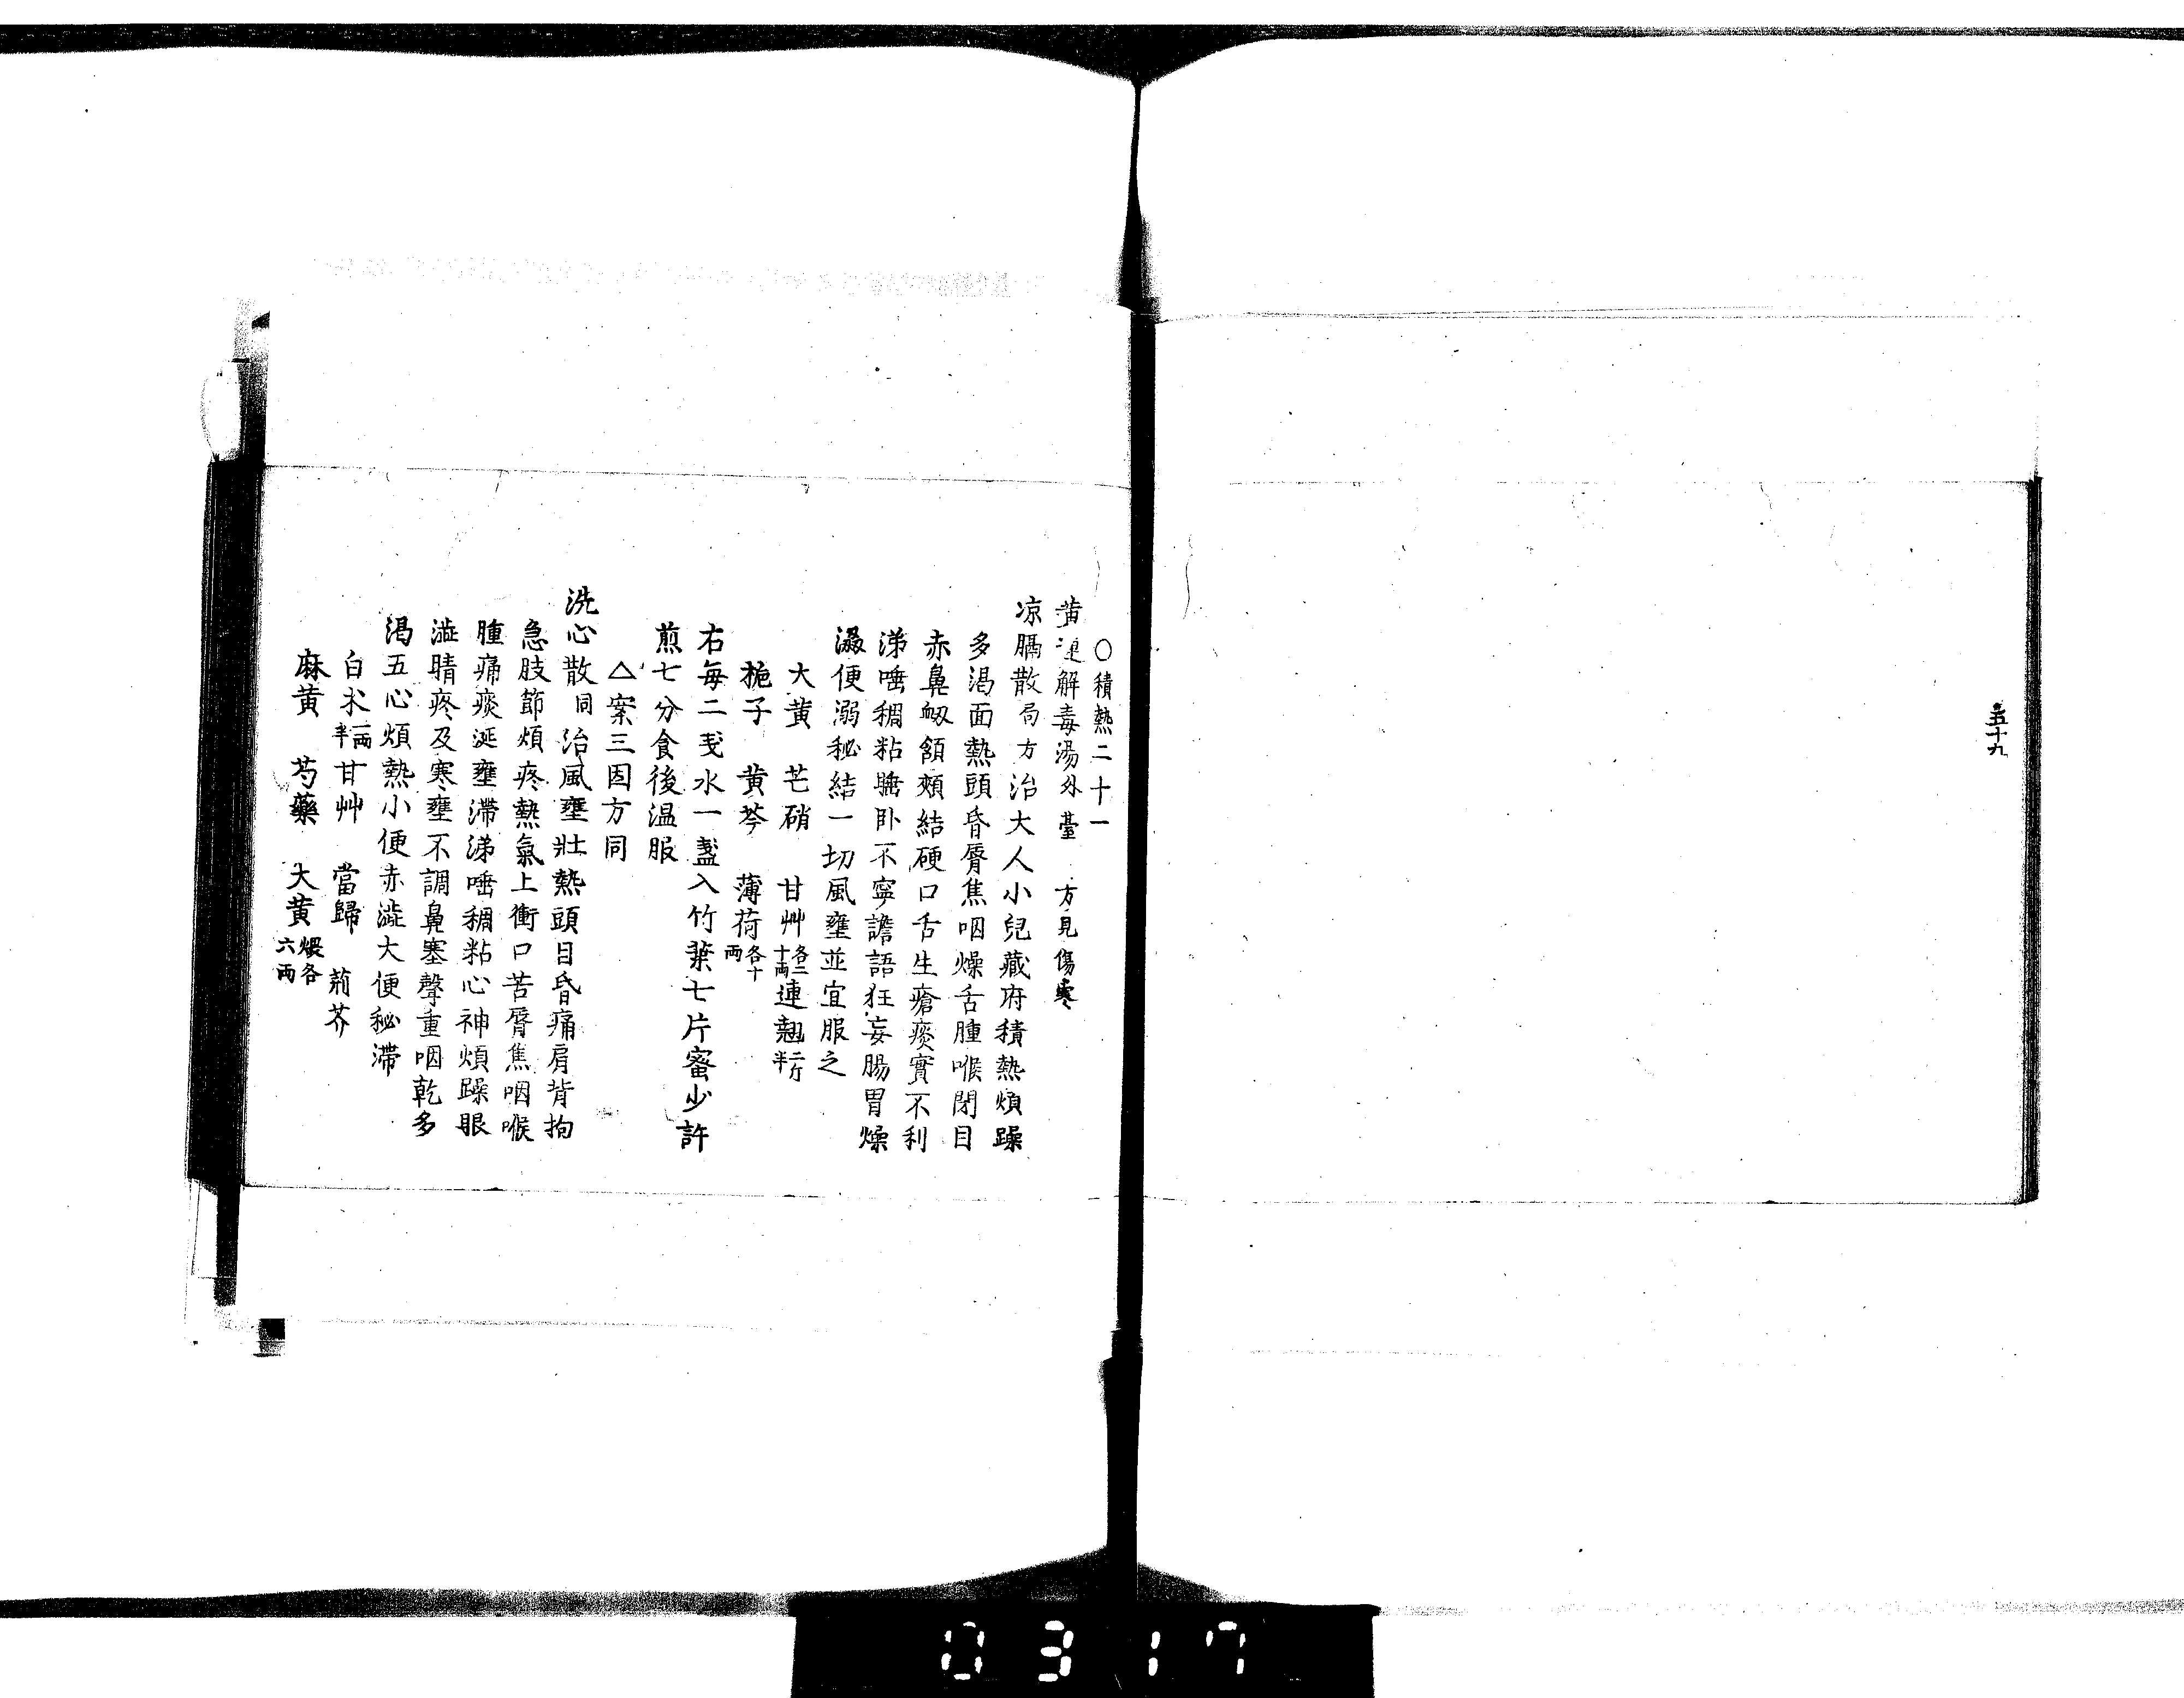 五十九
〇積熱二十一
黄連解毒湯外臺 方見傷寒
凉膈散局方治大人小兒藏府積熱煩躁
多渇面熱頭昏脣焦咽燥舌腫喉閉目
赤鼻衂頷頰結硬口舌生瘡痰實不利
涕唾稠粘睡卧不寧譫語狂妄腸胃燥
澁便溺秘結一切風壅並宜服之
大黄 芒硝 甘艸各二十両連翹二斤半
梔子 黄芩 薄荷各十両
右毎二戔水一盞入竹葉七片蜜少許
煎七分食後温服
△案三因方同
洗心散同治風壅壯熱頭目昏痛肩背拘
急肢節煩疼熱氣上衝口苦脣焦咽喉
腫痛痰涎壅滯涕唾稠粘心神煩躁眼
澁睛疼及寒壅不調鼻塞聲重咽乾多
渇五心煩熱小便赤澁大便秘滯
白朮一両半甘艸 當歸 荊芥
麻黄 芍藥 大黄煨各六両
0317